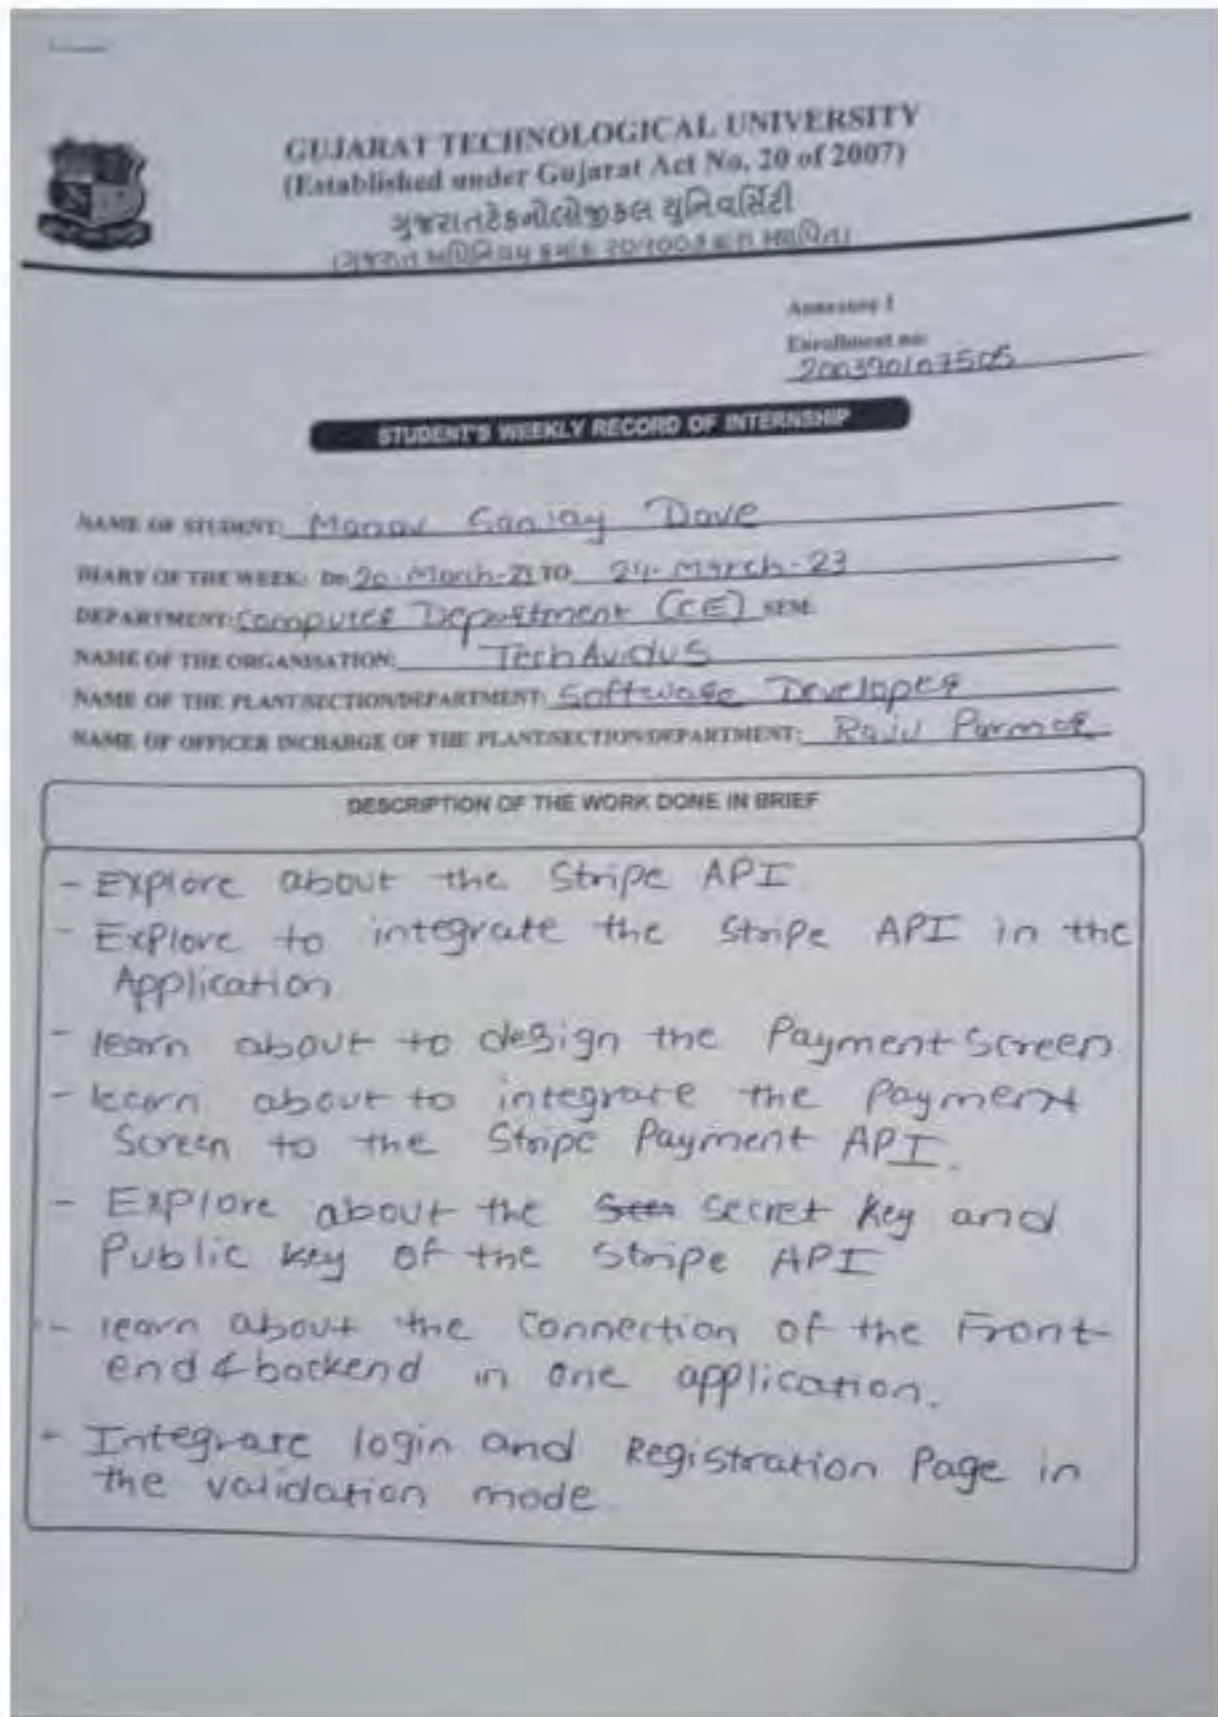 GUJARAT TECHNOLOGICAL UNIVERSITY
(Established under Gujarat Act No. 20 of 2007)
ગુજરાત ટેકનોલોજીકલ યુનિવર્સિટી
(ગુજરાત અધિનિયમ ક્રમાંક ૨૦/૨૦૦૭ દ્વારા સ્થાપિત)
Annexure I
Enrollment no:
200390107505
STUDENT'S WEEKLY RECORD OF INTERNSHIP
NAME OF STUDENT: Manav Sanjay Dave
DIARY OF THE WEEK: Dt: 20-March-23 TO 24-March-23
DEPARTMENT: Computer Department (CE) SEM:
NAME OF THE ORGANISATION: TechAvidus
NAME OF THE PLANT/SECTION/DEPARTMENT: Software Developer
NAME OF OFFICER INCHARGE OF THE PLANT/SECTION/DEPARTMENT: Raju Parmar
DESCRIPTION OF THE WORK DONE IN BRIEF
- Explore about the Stripe API
- Explore to integrate the Stripe API in the
Application
- learn about to design the Payment Screen.
- learn about to integrate the Payment
Screen to the Stripe Payment API.
- Explore about the secret key and
Public key of the Stripe API
- learn about the Connection of the Front-
end & backend in one application.
- Integrate login and Registration Page in
the validation mode.